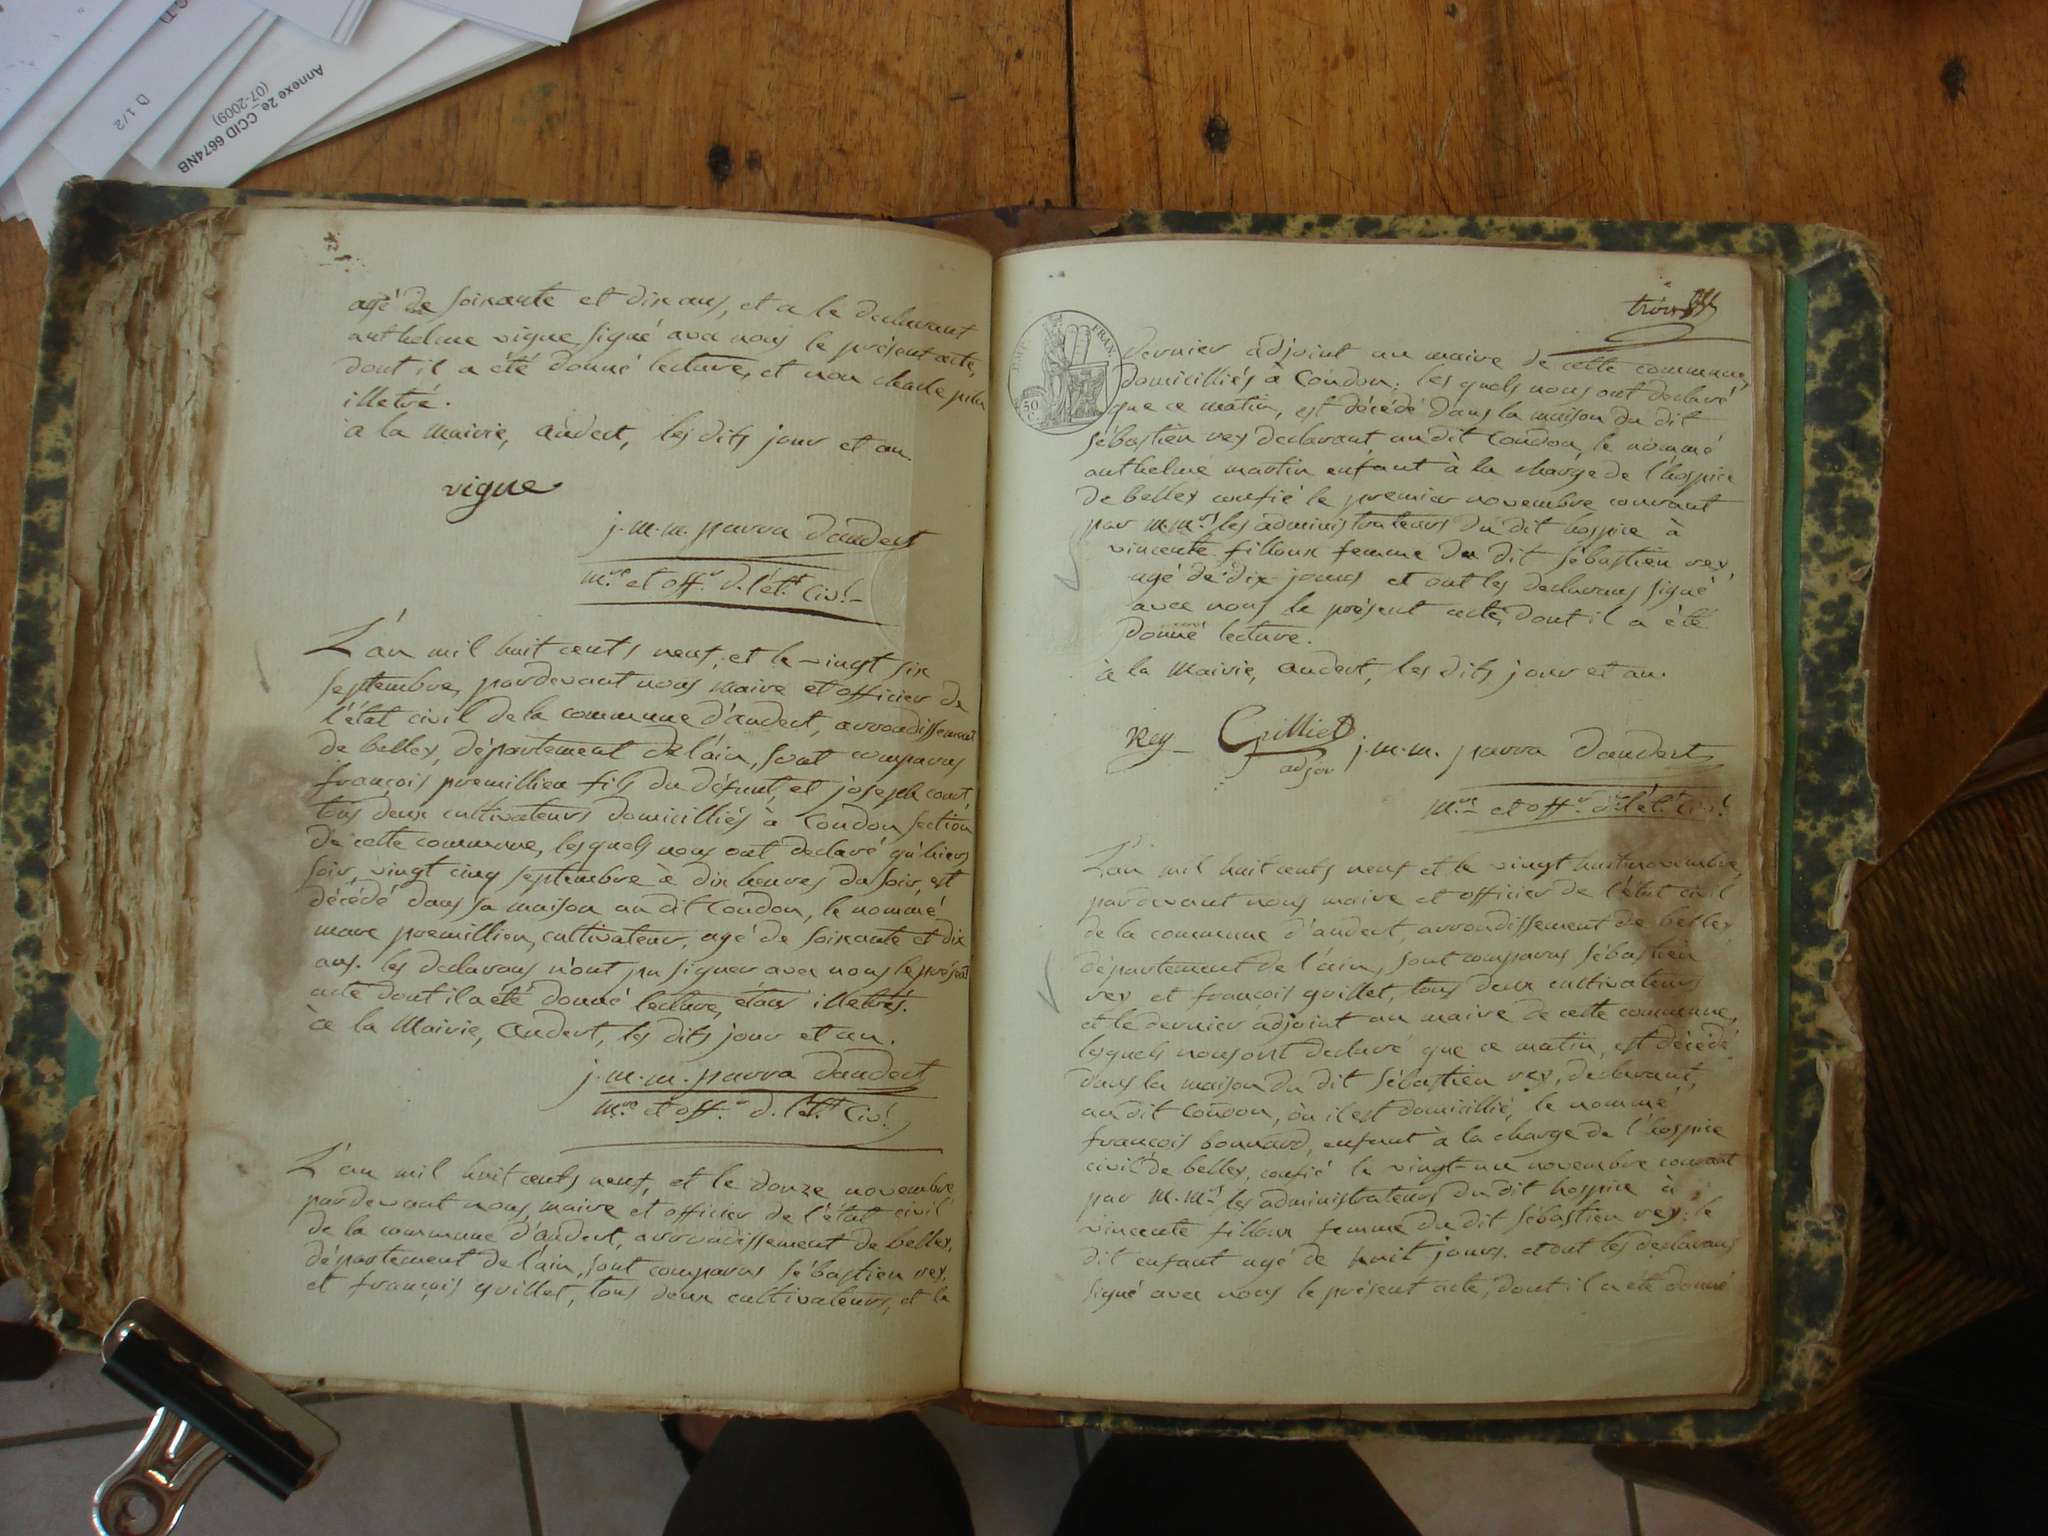 Annexe 2e_CCID 6674NB
(07-2009)
D 1/2
agé de soixante et dix ans, et a le declarant
anthelme vigne signé avec nous le présent acte,
dont il a été donné lecture, et non charle pour
illetré.
à la mairie, andert, les dits jour et an.
vigne
j. m. m. parra dandert
m.re et off.r d. l'ét.t civ.l
L'an mil huit cents neuf, et le vingt six
septembre, pardevant nous maire et officier de
l'état civil de la commune d'andert, arrondissement
de belley, département de l'ain, sont comparus
françois premillieu fils du défunt, et joseph cont,
tous deux cultivateurs domicilliés à Condon section
de cette commune, lesquels nous ont declaré qu'hiers
soir, vingt cinq septembre à dix heures du soir, est
décédé dans sa maison au dit Condon, le nommé
marc premillieu, cultivateur, agé de soixante et dix
ans. les declarans n'ont pu signer avec nous le présent
acte dont il a été donné lecture, étans illetrés.
à la Mairie, andert, les dits jour et an.
j. m. m. parra dandert
m.re et off.r d. l'ét.t civ.l
L'an mil huit cents neuf, et le douze novembre
pardevant nous, maire et officier de l'état civil
de la commune d'andert, arrondissement de belley,
département de l'ain, sont comparus sébastien rey,
et françois guillet, tous deux cultivateurs, et le
trois
FRAN
50
C
dernier adjoint au maire de cette commune,
domicilliés à Condon: les quels nous ont declaré
que ce matin, est décédé dans la maison du dit
sébastien rey declarant au dit Condon, le nommé
anthelme martin enfant à la charge de l'hospice
de belley confié le premier novembre courant
par m.mrs les administrateurs du dit hospice à
vincente filloux femme du dit sébastien rey,
agé de dix jours et ont les declarans signé
avec nous le présent acte, dont il a été
donné lecture.
à la Mairie, andert, les dits jour et an.
Rey Guilliet
adjoi j. m. m. parra dandert
m.re et off.r d. l'ét.t civ.l
L'an mil huit cents neuf et le vingt huit novembre,
pardevant nous maire et officier de l'état civil
de la commune d'andert, arrondissement de belley
département de l'ain, sont comparus sébastien
rey et françois guillet, tous deux cultivateurs
et le dernier adjoint au maire de cette commune,
lesquels nous ont declaré que ce matin, est décédé
dans la maison du dit sébastien rey, declarant,
au dit Condon, où il est domicillié, le nommé
françois bonnard, enfant à la charge de l'hospice
civil de belley, confié le vingt-un novembre courant
par m.mrs les administrateurs du dit hospice à
vincente filloux femme du dit sébastien rey; le
dit enfant agé de huit jours. et ont les declarans
signé avec nous le présent acte, dont il a été donné